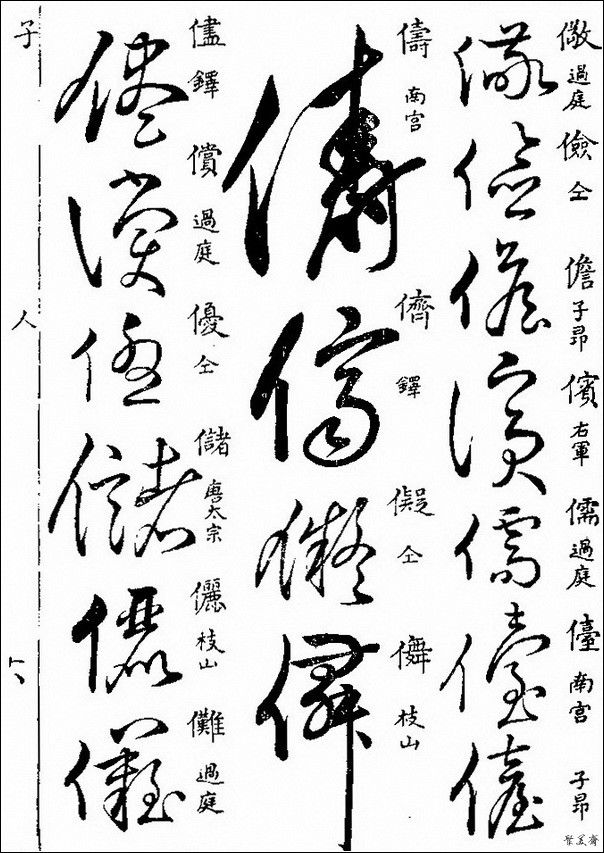 儆 過庭
儉 仝
儋 子昂
儐 右軍
儒 過庭
儓 南宮
子昂
儔 南宮
儕 鐸
儗 仝
儛 枝山
儘 鐸
償 過庭
優 仝
儲 唐太宗
儷 枝山
儺 過庭
子
人